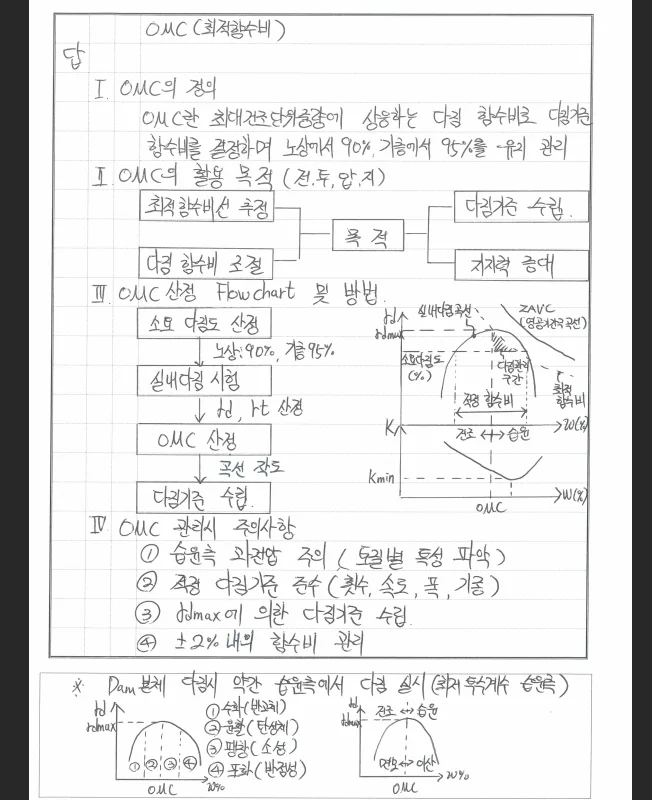 OMC (최적함수비)
답
Ⅰ. OMC의 정의
OMC란 최대건조단위중량에 상응하는 다짐 함수비로 다짐기준
함수비를 결정하며 노상에서 90%, 기층에서 95%를 유지 관리
Ⅱ. OMC의 활용 목적 (전.투.압.지)
최적함수비선 추정
다짐기준 수립.
목적
다짐 함수비 조절
지지력 증대
Ⅲ. OMC 산정 Flow chart 및 방법.
소요 다짐도 산정
노상:90%, 기층95%
실내다짐 시험
γd, γt 산정
OMC 산정
곡선 작도
다짐기준 수립.
γd
실내다짐곡선
ZAVC
(영공기간극곡선)
γdmax
소요다짐도
(%)
다짐관리
구간
최적
함수비
적정 함수비
건조 ↔ 습윤
W(%)
K
Kmin
W(%)
OMC
Ⅳ OMC 관리시 주의사항
① 습윤측 과전압 주의 (토질별 특성 파악)
② 적정 다짐기준 준수 (횟수, 속도, 폭, 기종)
③ γdmax에 의한 다짐기준 수립.
④ ±2% 내의 함수비 관리
※ Dam 본체 다짐시 약간 습윤측에서 다짐 실시 (최저 투수계수 습윤측)
γd
γdmax
① ② ③ ④
OMC
W%
① 수화 (반고체)
② 윤활 (탄성체)
③ 팽창 (소성)
④ 포화 (반점성)
γd
γdmax
건조 ↔ 습윤
면모 ↔ 이산
W%
OMC